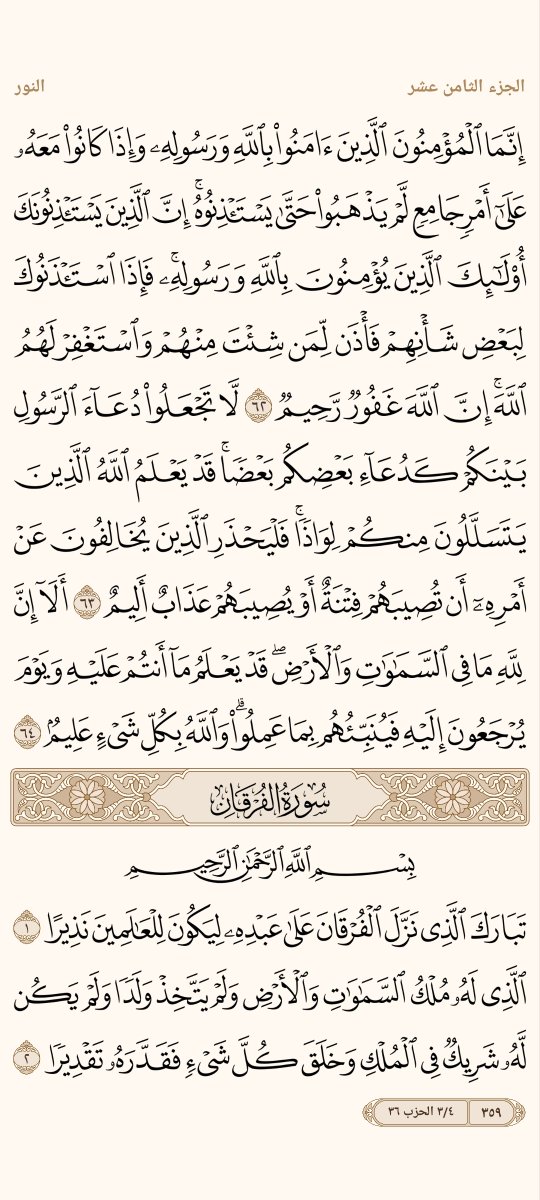 الجزء الثامن عشر
النور
إِنَّمَا ٱلْمُؤْمِنُونَ ٱلَّذِينَ ءَامَنُوا۟ بِٱللَّهِ وَرَسُولِهِۦ وَإِذَا كَانُوا۟ مَعَهُۥ
عَلَىٰٓ أَمْرٍ جَامِعٍ لَّمْ يَذْهَبُوا۟ حَتَّىٰ يَسْتَـْٔذِنُوهُ ۚ إِنَّ ٱلَّذِينَ يَسْتَـْٔذِنُونَكَ
أُو۟لَـٰٓئِكَ ٱلَّذِينَ يُؤْمِنُونَ بِٱللَّهِ وَرَسُولِهِۦ ۚ فَإِذَا ٱسْتَـْٔذَنُوكَ
لِبَعْضِ شَأْنِهِمْ فَأْذَن لِّمَن شِئْتَ مِنْهُمْ وَٱسْتَغْفِرْ لَهُمُ
ٱللَّهَ ۚ إِنَّ ٱللَّهَ غَفُورٌ رَّحِيمٌ ٦٢ لَّا تَجْعَلُوا۟ دُعَآءَ ٱلرَّسُولِ
بَيْنَكُمْ كَدُعَآءِ بَعْضِكُم بَعْضًا ۚ قَدْ يَعْلَمُ ٱللَّهُ ٱلَّذِينَ
يَتَسَلَّلُونَ مِنكُمْ لِوَاذًا ۚ فَلْيَحْذَرِ ٱلَّذِينَ يُخَالِفُونَ عَنْ
أَمْرِهِۦٓ أَن تُصِيبَهُمْ فِتْنَةٌ أَوْ يُصِيبَهُمْ عَذَابٌ أَلِيمٌ ٦٣ أَلَآ إِنَّ
لِلَّهِ مَا فِى ٱلسَّمَـٰوَٰتِ وَٱلْأَرْضِ ۖ قَدْ يَعْلَمُ مَآ أَنتُمْ عَلَيْهِ وَيَوْمَ
يُرْجَعُونَ إِلَيْهِ فَيُنَبِّئُهُم بِمَا عَمِلُوا۟ ۗ وَٱللَّهُ بِكُلِّ شَىْءٍ عَلِيمٌۢ ٦٤
سُورَةُ الفُرْقَانِ
بِسْمِ ٱللَّهِ ٱلرَّحْمَـٰنِ ٱلرَّحِيمِ
تَبَارَكَ ٱلَّذِى نَزَّلَ ٱلْفُرْقَانَ عَلَىٰ عَبْدِهِۦ لِيَكُونَ لِلْعَـٰلَمِينَ نَذِيرًا ١
ٱلَّذِى لَهُۥ مُلْكُ ٱلسَّمَـٰوَٰتِ وَٱلْأَرْضِ وَلَمْ يَتَّخِذْ وَلَدًا وَلَمْ يَكُن
لَّهُۥ شَرِيكٌ فِى ٱلْمُلْكِ وَخَلَقَ كُلَّ شَىْءٍ فَقَدَّرَهُۥ تَقْدِيرًا ٢
٣٥٩
٣/٤ الحزب ٣٦